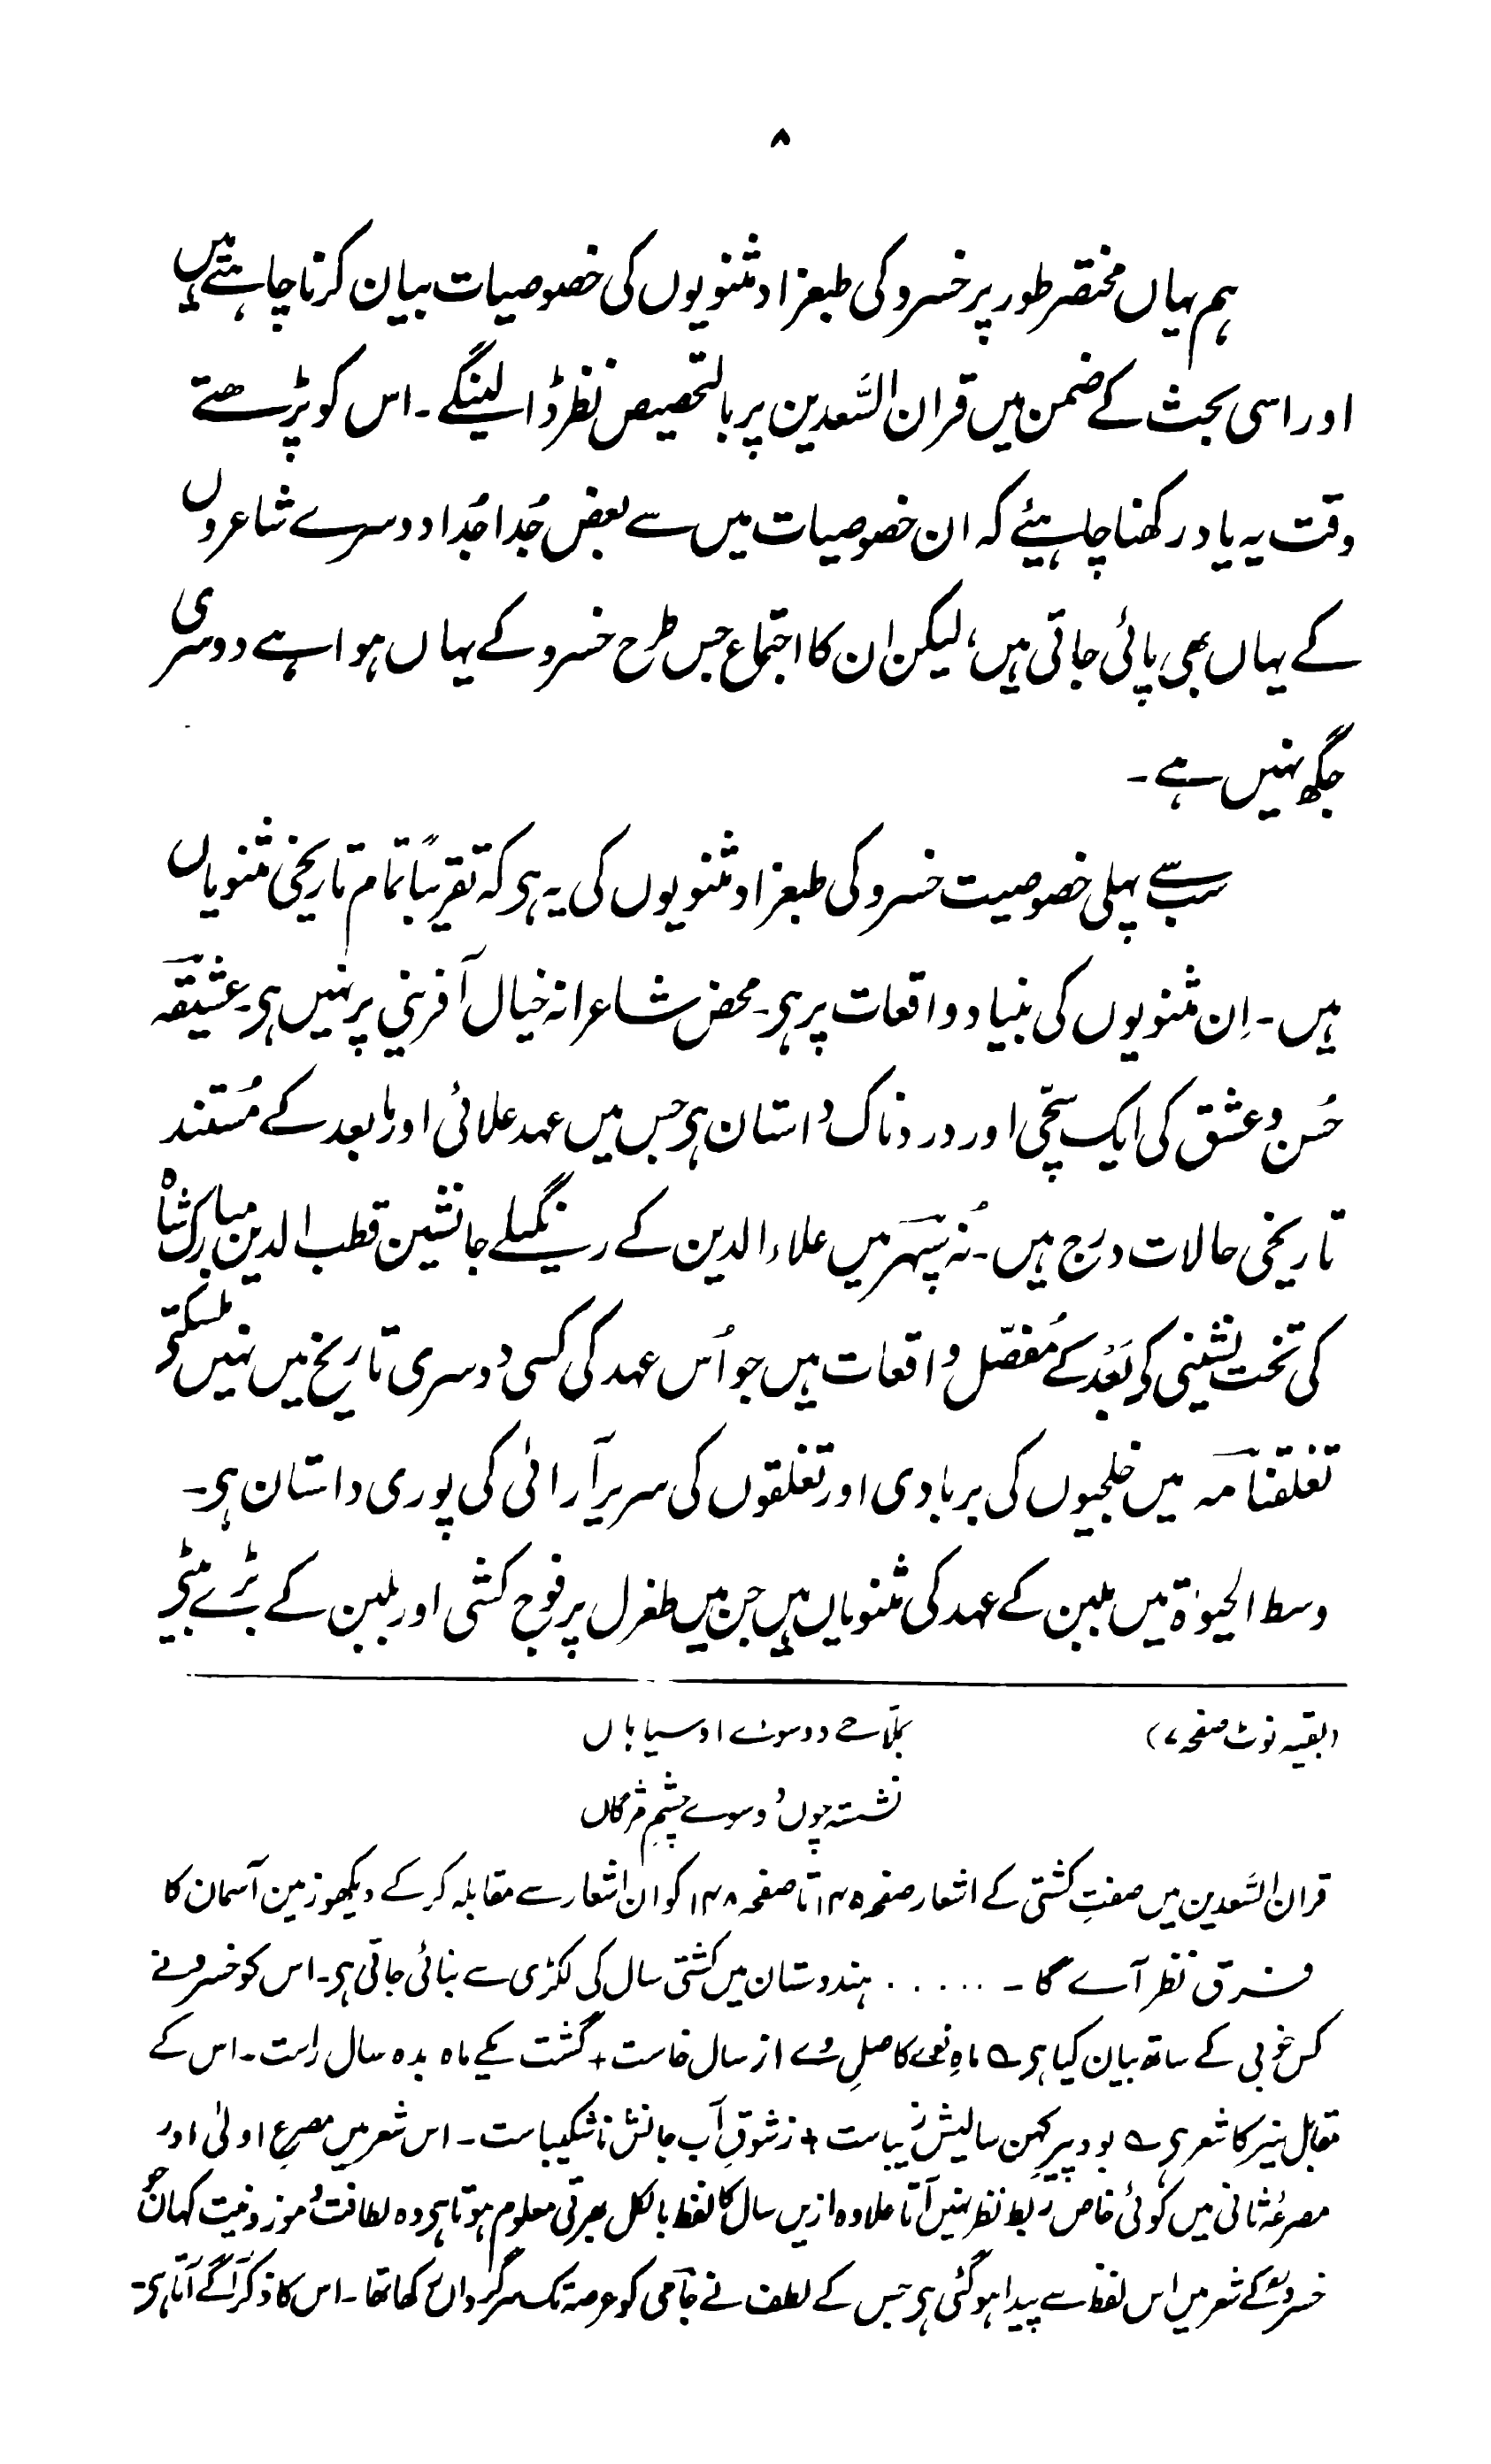 ۸
ہم یہاں مختصر طور پر خسرو کی طبعزاد مثنویوں کی خصوصیات بیان کرنا چاہتے ہیں
اور اسی بحث کے ضمن میں قران السّعدین پر بالتحصیص نظر ڈالینگے۔ اس کو پڑھتے
وقت یہ یاد رکھنا چاہیئے کہ ان خصوصیات میں سے بعض جُدا جُدا دوسرے شاعروں
کے یہاں بھی پائی جاتی ہیں، لیکن ان کا اجتماع جس طرح خسرو کے یہاں ہوا ہے دوسری
جگہ نہیں ہے۔
سب سے پہلی خصوصیت خسرو کی طبعزاد مثنویوں کی یہ ہی کہ تقریباً تمام تاریخی مثنویاں
ہیں۔ اِن مثنویوں کی بنیاد واقعات پر ہی۔ محض شاعرانہ خیال آفرینی پر نہیں ہی۔ عشیقہ
حُسن و عشق کی ایک سچّی اور دردناک داستان ہی جس میں عہد علائی اور مابعد کے مُستند
تاریخی حالات درج ہیں۔ نُہ سپہر میں علاء الدین کے رنگیلے جانشین قطب الدین مبارک شاہ
کی تخت نشینی کی بَعد کے مُفصّل واقعات ہیں جو اُس عہد کی کسی دوسری تاریخ میں نہیں ملسکتی
تغلقنامہ میں خلجیوں کی بربادی اور تغلقوں کی سریر آرائی کی پوری داستان ہی۔
وسط الحیوٰۃ میں بلبن کے عہد کی مثنویاں ہیں جن میں طغرل پر فوج کشی اور بلبن کے بڑے بیٹی
(بقیہ نوٹ صفحہ ۷) دوسوے او سیاہاں
نشستہ چوں دوسوے چشمِ مژگاں
قران السّعدین میں صفتِ کشتی کے اشعار صفحہ ۱۴۵ تا صفحہ ۱۴۸ کو ان اشعار سے مقابلہ کر کے دیکھو زمین آسمان کا
فرق نظر آے گا۔ ..... ہندوستان میں کشتی سال کی لکڑی سے بنائی جاتی ہی۔ اس کو خسرو نے
کس خوبی کے ساتھ بیان کیا ہی ؎ ماہِ نوے کاصلِ وے از سال خاست + گشت یکے ماہ بدہ سال راست۔ اس کے
مقابل نیر کا شعر ہی ؎ بود پیرِ کہن سالیش زیباست + ز شوقِ آب جانش ناشکیباست۔ اس شعر میں مصرعِ اولیٰ اور
مصرعۂ ثانی میں کوئی خاص ربط نظر نہیں آتا علاوہ ازیں سال کا لفظ بالکل بھرتی معلوم ہوتا ہی وہ لطافت و موزونیت کہاں جو
خسرو کے شعر میں اس لفظ سے پیدا ہو گئی ہی جس کے لطف نے جامی کو عرصہ تک سرگرداں رکھا تھا۔ اس کا ذکر آگے آتا ہی۔